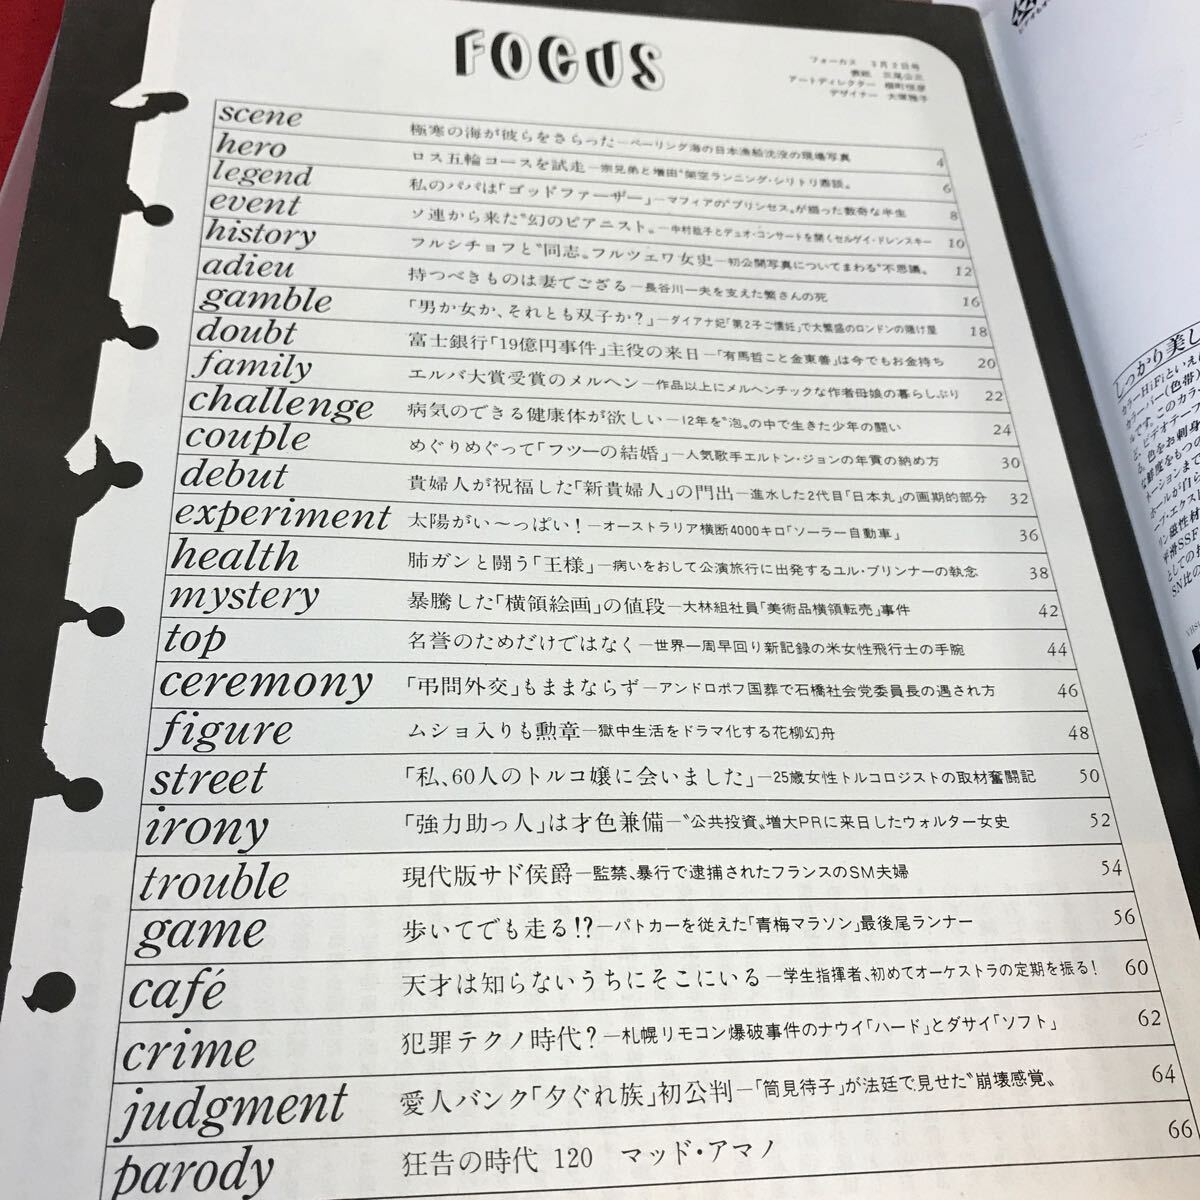 FOCUS
フォーカス 3月2日号
表紙 三尾公三
アートディレクター
デザイナー
scene 極寒の海が彼らをさらった—ベーリング海の日本漁船沈没の現場写真 4
hero ロス五輪コースを試走—宗兄弟と増田〝架空ランニング・シリトリ鼎談〟 6
legend 私のパパは「ゴッドファーザー」—マフィアの〝プリンセス〟が綴った数奇な半生 8
event ソ連から来た〝幻のピアニスト〟—中村紘子とデュオ・コンサートを開くセルゲイ・ドレンスキー 10
history フルシチョフと〝同志〟フルツェワ女史—初公開写真についてまわる〝不思議〟 12
adieu 持つべきものは妻でござる—長谷川一夫を支えた繁さんの死 16
gamble 「男か女か、それとも双子か?」—ダイアナ妃「第2子ご懐妊」で大繁盛のロンドンの賭け屋 18
doubt 富士銀行「19億円事件」主役の来日—「有馬哲こと金東善」は今でもお金持ち 20
family エルバ大賞受賞のメルヘン—作品以上にメルヘンチックな作者母娘の暮らしぶり 22
challenge 病気のできる健康体が欲しい—12年を〝泡〟の中で生きた少年の闘い 24
couple めぐりめぐって「フツーの結婚」—人気歌手エルトン・ジョンの年貢の納め方 30
debut 貴婦人が祝福した「新貴婦人」の門出—進水した2代目「日本丸」の画期的部分 32
experiment 太陽がい〜っぱい!—オーストラリア横断4000キロ「ソーラー自動車」 36
health 肺ガンと闘う「王様」—病いをおして公演旅行に出発するユル・ブリンナーの執念 38
mystery 暴騰した「横領絵画」の値段—大林組社員「美術品横領転売」事件 42
top 名誉のためだけではなく—世界一周早回り新記録の米女性飛行士の手腕 44
ceremony 「弔問外交」もままならず—アンドロポフ国葬で石橋社会党委員長の遇され方 46
figure ムショ入りも勲章—獄中生活をドラマ化する花柳幻舟 48
street 「私、60人のトルコ嬢に会いました」—25歳女性トルコロジストの取材奮闘記 50
irony 「強力助っ人」は才色兼備—〝公共投資〟増大PRに来日したウォルター女史 52
trouble 現代版サド侯爵—監禁、暴行で逮捕されたフランスのSM夫婦 54
game 歩いてでも走る!?—パトカーを従えた「青梅マラソン」最後尾ランナー 56
café 天才は知らないうちにそこにいる—学生指揮者、初めてオーケストラの定期を振る! 60
crime 犯罪テクノ時代?—札幌リモコン爆破事件のナウイ「ハード」とダサイ「ソフト」 62
judgment 愛人バンク「夕ぐれ族」初公判—「筒見待子」が法廷で見せた〝崩壊感覚〟 64
parody 狂告の時代 120 マッド・アマノ 66
しっかり美し
カラーHiFiといえば
カラーバー(色帯)
ルです。このカラ
ど、ビデオテープ
る。色をお刺身
な鮮度をもつの
ネーションまで
ホールが自ら
ープ・エクスト
リン磁性材
平滑SSF
としての
SN比の